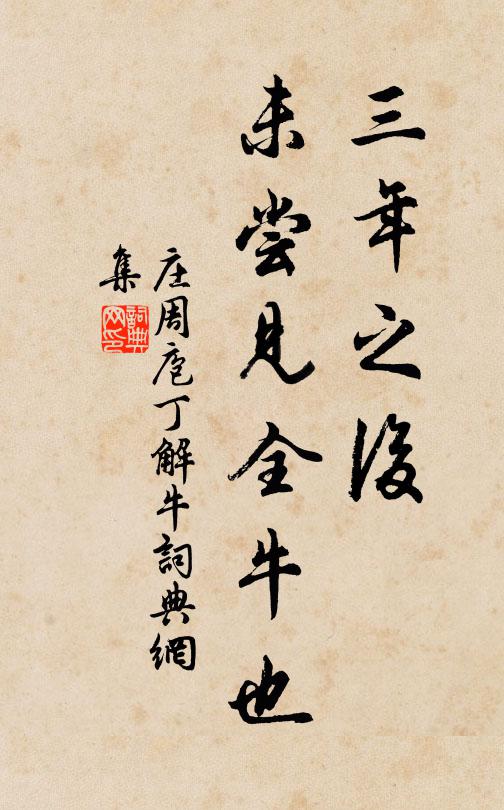 三年之後
未嘗見全牛也
庄周庖丁解牛詞典網
集
詞典
网印